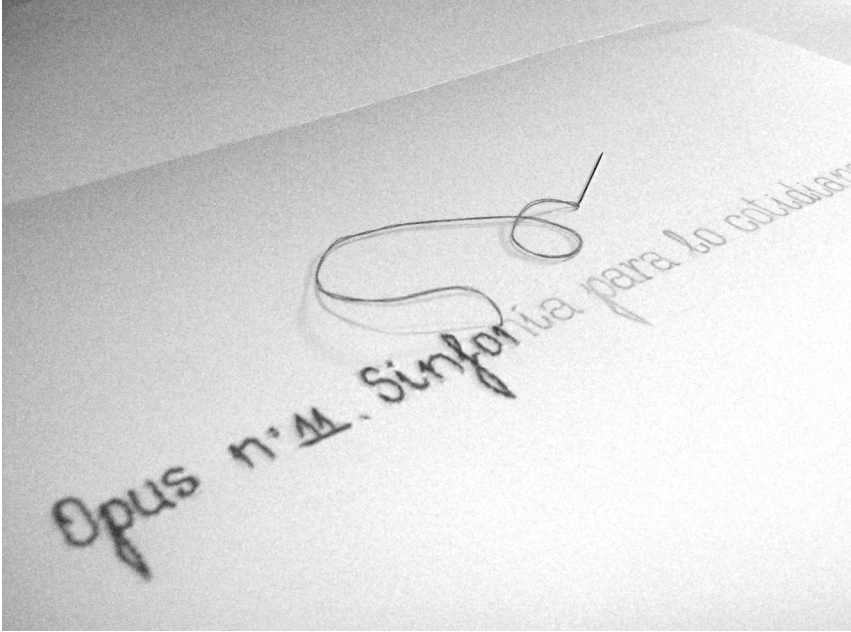 Opus n·11. Sinfonía para lo cotidiano